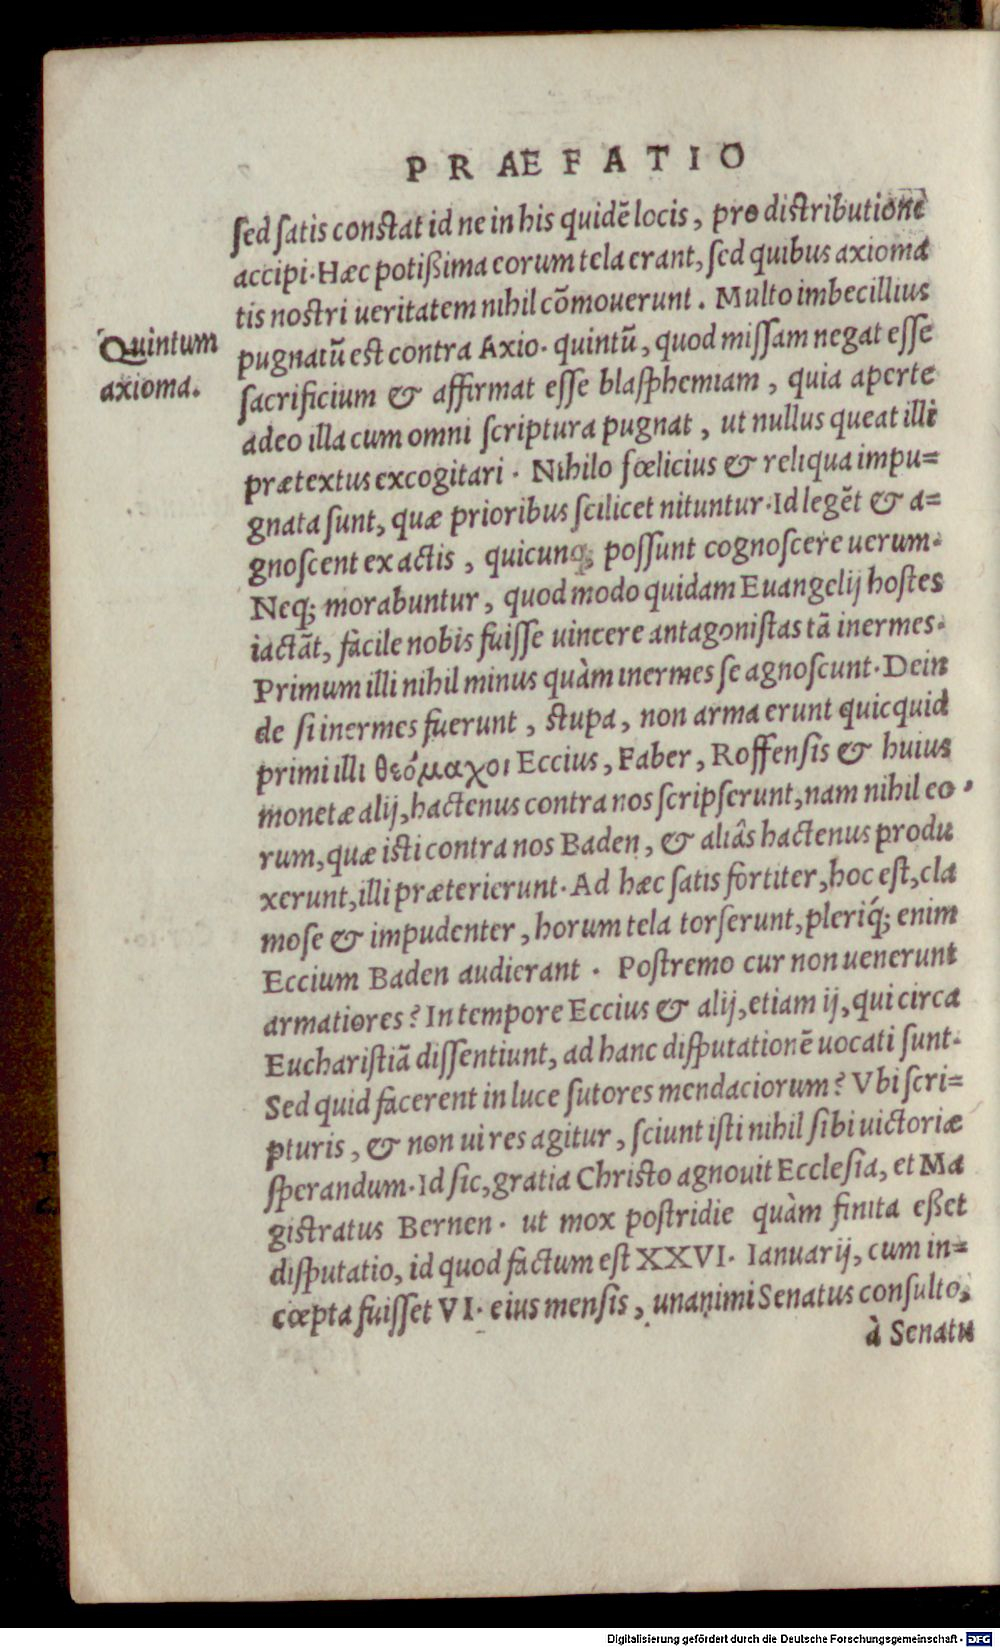 PRAEFATIO
sed satis constat id ne in his quidē locis, pro distributione
accipi. Hæc potißima eorum tela erant, sed quibus axioma
tis nostri ueritatem nihil cōmouerunt. Multo imbecillius
Quintum
axioma.
pugnatū est contra Axio. quintū, quod missam negat esse
sacrificium & affirmat esse blasphemiam, quia aperte
adeo illa cum omni scriptura pugnat, ut nullus queat illi
prætextus excogitari. Nihilo fœlicius & reliqua impu=
gnata sunt, quæ prioribus scilicet nituntur. Id legēt & a=
gnoscent ex actis, quicunq; possunt cognoscere uerum.
Neq; morabuntur, quod modo quidam Euangelij hostes
iactāt, facile nobis fuisse uincere antagonistas tā inermes.
Primum illi nihil minus quàm inermes se agnoscunt. Dein
de si inermes fuerunt, stupa, non arma erunt quicquid
primi illi θεόμαχοι Eccius, Faber, Roffensis & huius
monetæ alij, hactenus contra nos scripserunt, nam nihil eo
rum, quæ isti contra nos Baden, & aliâs hactenus produ
xerunt, illi præterierunt. Ad hæc satis fortiter, hoc est, cla
mose & impudenter, horum tela torserunt, pleriq́; enim
Eccium Baden audierant. Postremo cur non uenerunt
armatiores? In tempore Eccius & alij, etiam ij, qui circa
Eucharistiā dissentiunt, ad hanc disputationē uocati sunt.
Sed quid facerent in luce sutores mendaciorum? Vbi scri=
pturis, & non ui res agitur, sciunt isti nihil sibi uictoriæ
sperandum. Id sic, gratia Christo agnouit Ecclesia, et Ma
gistratus Bernen. ut mox postridie quàm finita eßet
disputatio, id quod factum est XXVI. Ianuarij, cum in=
cœpta fuisset VI. eius mensis, unanimi Senatus consulto,
à Senatu
Digitalisierung gefördert durch die Deutsche Forschungsgemeinschaft - DFG